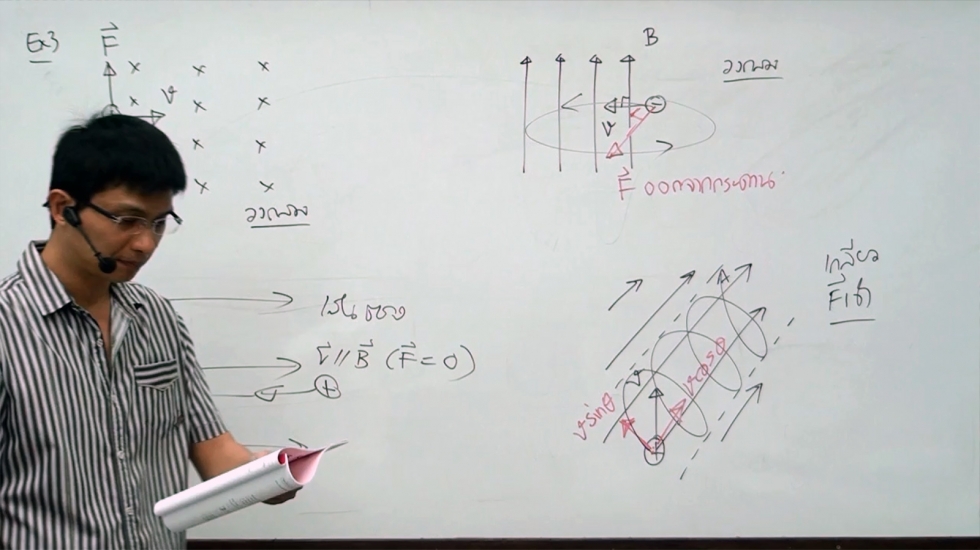 Ex3
F⃗
× × ×
v
× × ×
× ×
× ×
วงกลม
เส้นตรง
v⃗ // B⃗ (F⃗ = 0)
+
B
วงกลม
−
v
F⃗ ออกจากกระดาน
เกลียว
F⃗เข้า
v
v sinθ
v cosθ
+